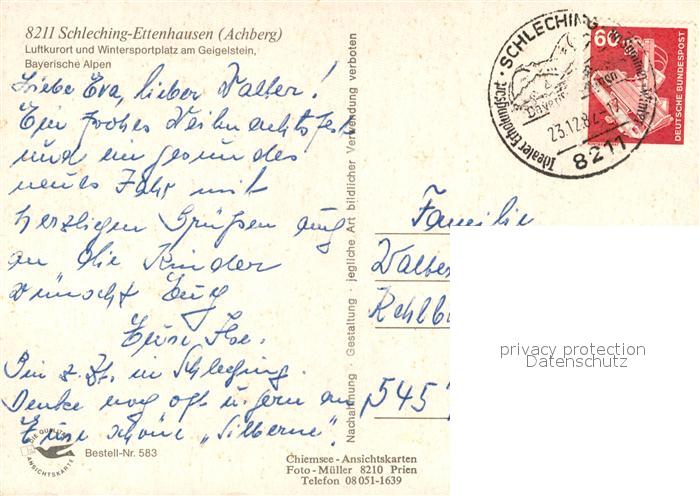 8211 Schleching-Ettenhausen (Achberg)
Luftkurort und Wintersportplatz am Geigelstein,
Bayerische Alpen
Liebe Eva, lieber Walter!
Ein frohes Weihnachtsfest
und ein gesundes
neues Jahr mit
herzlichen Grüßen auch
an die Kinder
wünscht Euch
Eure Ilse.
Bin z. Zt. in Schleching.
Denke noch oft u. gern an
Eure schöne „Silberne".
DIE QUALITÄTS
ANSICHTSKARTE
Bestell-Nr. 583
Nachahmung · Gestaltung · jegliche Art bildlicher Verwendung verboten
Chiemsee-Ansichtskarten
Foto-Müller 8210 Prien
Telefon 08051-1639
SCHLECHING
Idealer Erholungsort
23.12.82-17
8211
60
DEUTSCHE BUNDESPOST
Familie
Walter
545
privacy protection
Datenschutz